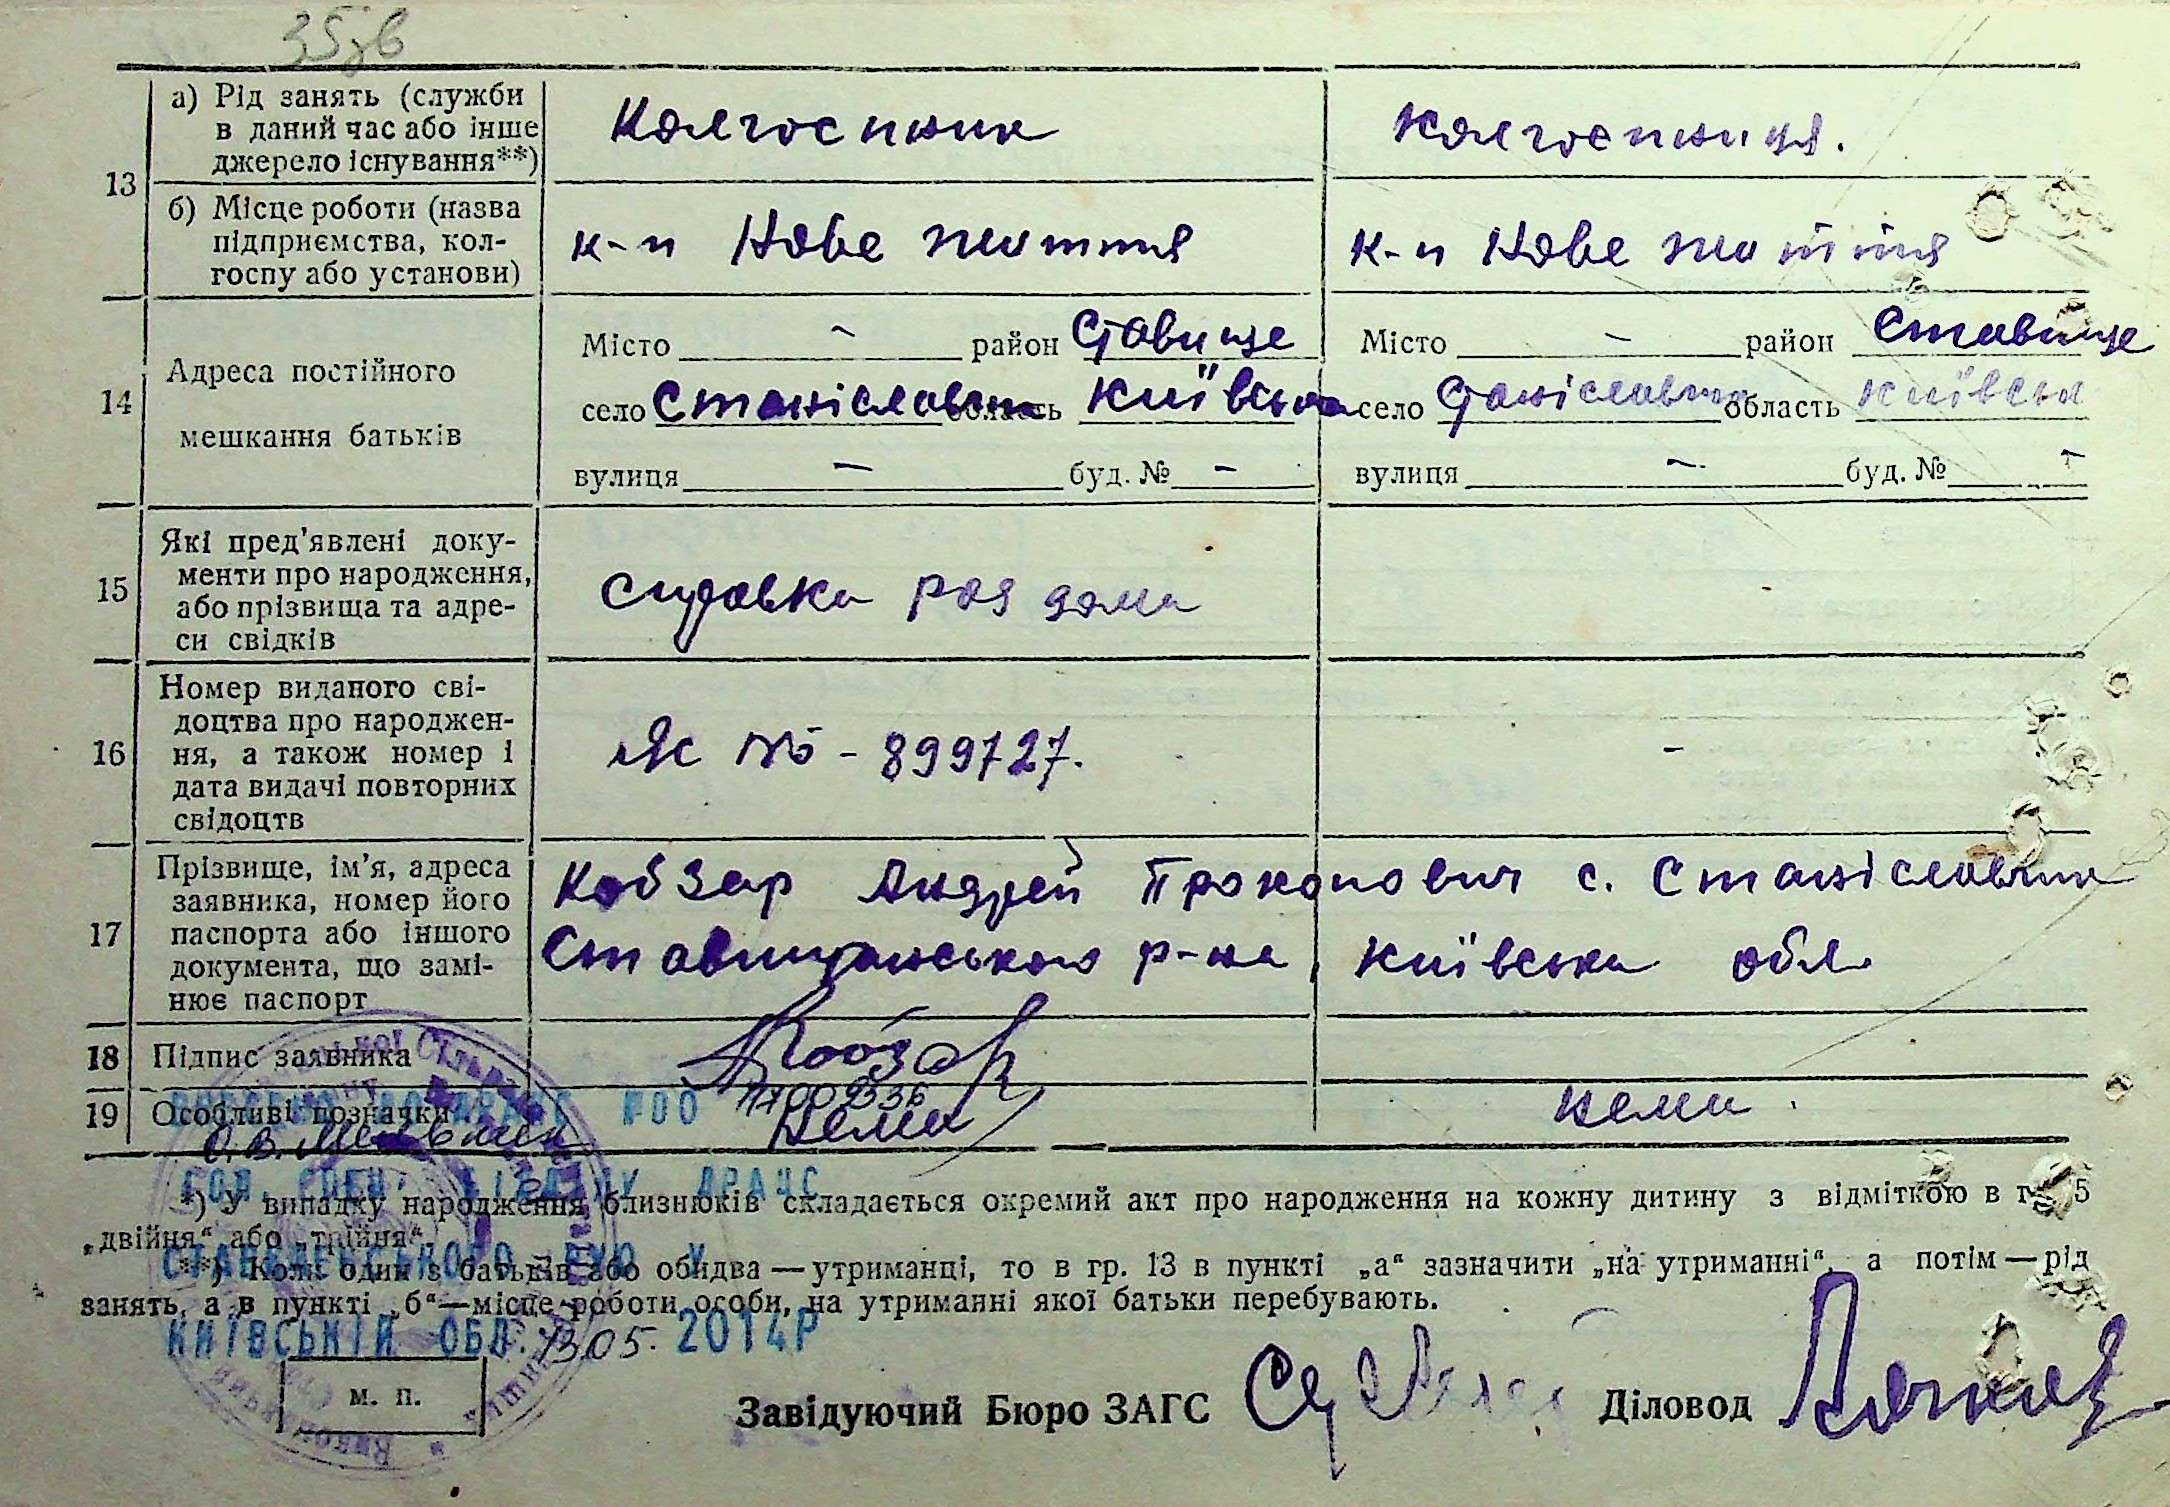 а) Рід занять (служби
в даний час або інше
джерело існування**)
13
Колгоспник
колгоспниця.
б) Місце роботи (назва
підприємства, кол-
госпу або установи)
к-п Нове життя
к-п Нове життя
14
Адреса постійного
мешкання батьків
Місто - район Ставище
село Станіславчик область Київська
вулиця - буд. № -
Місто - район Ставище
село Станіславчик область Київськ
вулиця - буд. № -
15
Які пред'явлені доку-
менти про народження,
або прізвища та адре-
си свідків
справка род дома
16
Номер виданого сві-
доцтва про народжен-
ня, а також номер і
дата видачі повторних
свідоцтв
№ - 899727.
-
17
Прізвище, ім'я, адреса
заявника, номер його
паспорта або іншого
документа, що замі-
нює паспорт
Кобзар Андрей Прокопович с. Станіславчик
Ставищанського р-на Київська обл.
18 Підпис заявника
Кобзар
19 Особливі позначки
нема
нема.
*) У випадку народження близнюків складається окремий акт про народження на кожну дитину з відміткою в 5
„двійня“ або „трійня“.
**) Коли один з батьків або обидва — утриманці, то в гр. 13 в пункті „а“ зазначити „на утриманні“, а потім — рід
занять, а в пункті „б“ — місце роботи особи, на утриманні якої батьки перебувають.
КИЇВСЬКІЙ ОБЛ. 13.05. 2014Р
м. п.
Завідуючий Бюро ЗАГС
Діловод